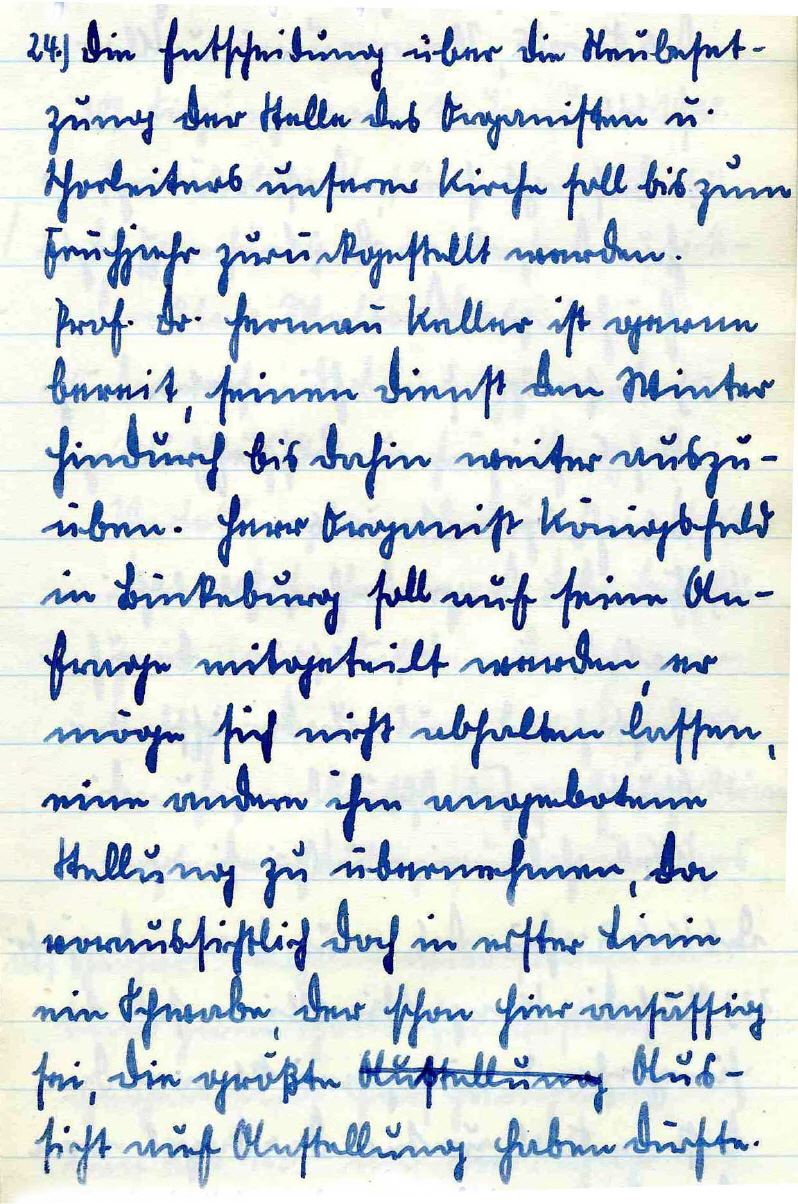 24.) Die Entscheidung über die Neubeset-
zung der Stelle des Organisten u.
Chorleiters unserer Kirche soll bis zum
Frühjahr zurückgestellt werden.
Prof. Dr. Herman Keller ist gerne
bereit, seinen Dienst den Winter
hindurch bis dahin weiter auszu-
üben. Herr Organist Königsfeld
in Bückeburg soll auf seine An-
frage mitgeteilt werden, er
möge sich nicht abhalten lassen,
eine andere ihm angebotene
Stellung zu übernehmen, da
voraussichtlich doch in erster Linie
ein Schwabe, der schon hier ansässig
sei, die größte Anstellung Aus-
sicht auf Anstellung haben dürfte.